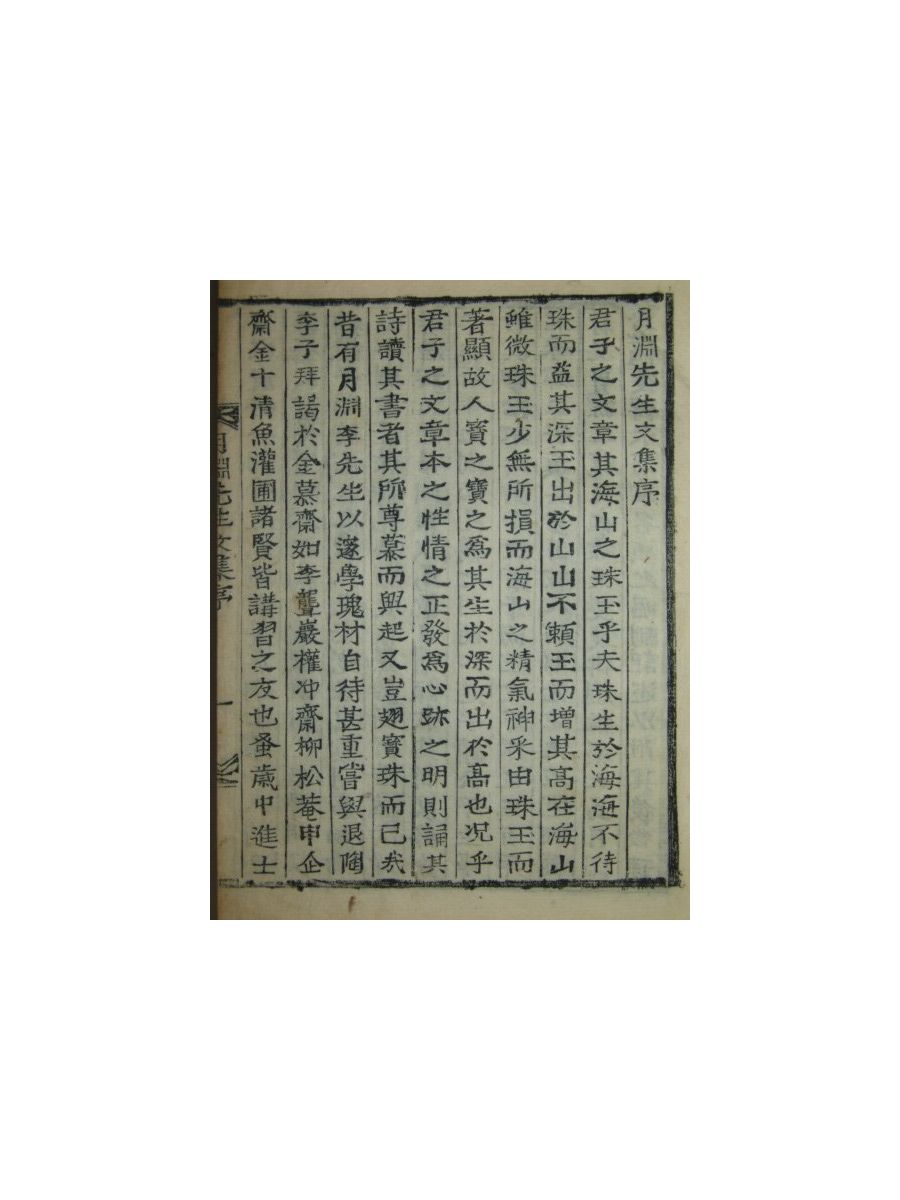 月淵先生文集序
君子之文章其海山之珠玉乎夫珠生於海海不待
珠而益其深玉出於山山不賴玉而增其高在海山
雖微珠玉少無所損而海山之精氣神采由珠玉而
著顯故人寶之寶之爲其生於深而出於高也况乎
君子之文章本之性情之正發爲心跡之明則誦其
詩讀其書者其所尊慕而興起又豈翅寶珠而已㢤
昔有月淵李先生以邃學瑰材自待甚重嘗與退陶
李子拜謁於金慕齋如李聾巖權冲齋柳松菴申企
齋金十清魚灌圃諸賢皆講習之友也蚤歲中進士
月淵先生文集序
一